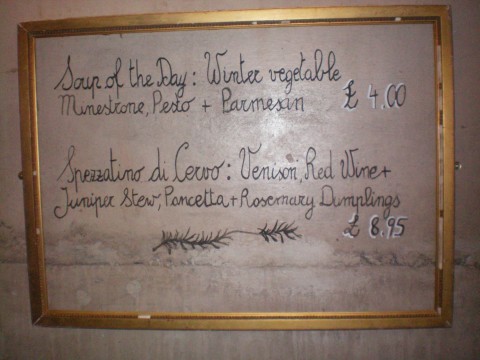 Soup of the Day: Winter vegetable
Minestrone, Pesto + Parmesan £4.00
Spezzatino di Cervo: Venison, Red Wine +
Juniper Stew, Pancetta + Rosemary Dumplings
£8.95